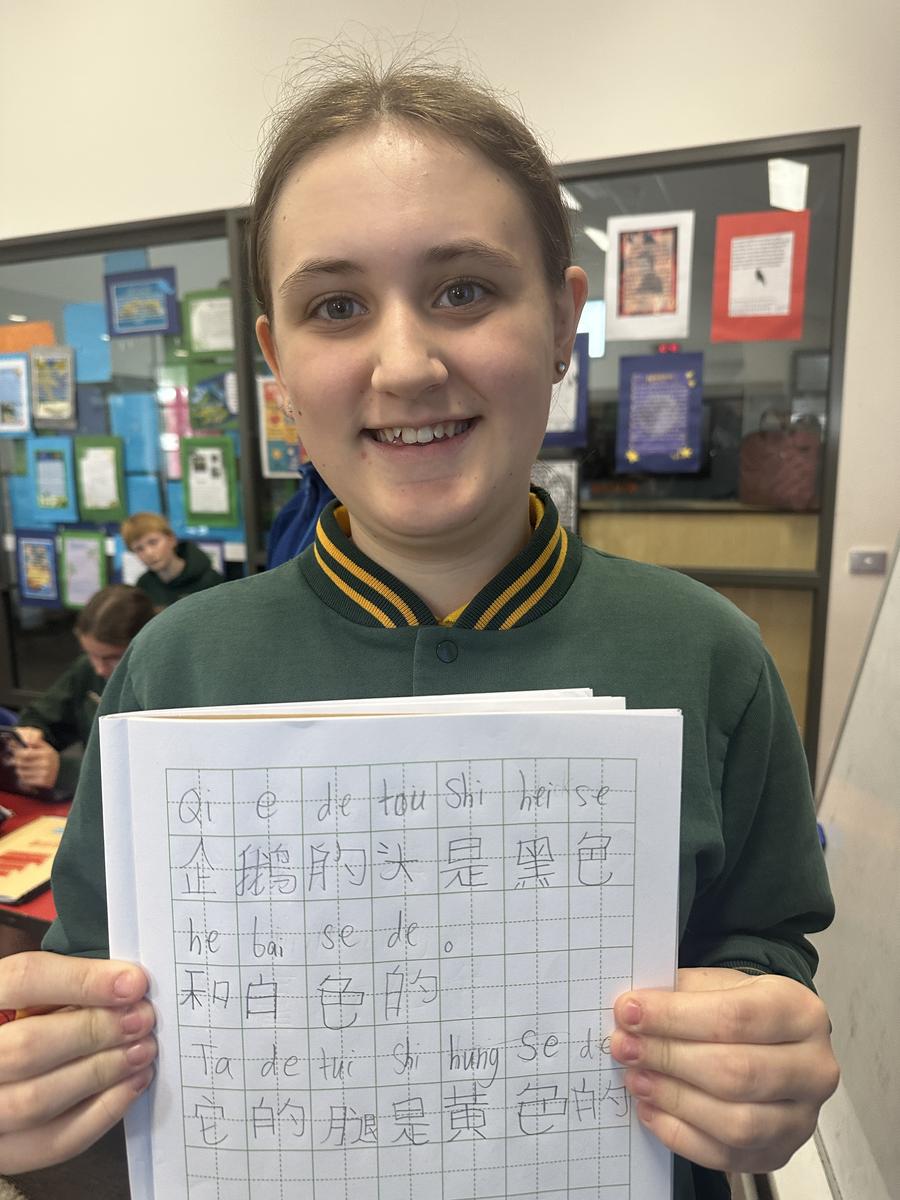 Qi e de tou Shi hei se
企鹅的头是黑色
he bai se de 。
和白色的
Ta de tui Shi hung Se de
它的腿是黄色的